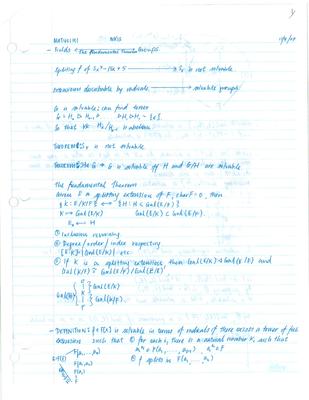 - Fields & The Fundamental Theorem Groups.
Splitting f of 3x⁵-15x+5 → S₅ is not solvable
extensions describable by radicals → solvable groups
G is solvable: can find tower
so that ∀k Hₖ/Hₖ₊₁ is abelian
THEOREM: S₅ is not solvable
H ⊲ G → G is solvable iff H and G/H are solvable
The Fundamental Theorem
Given E a splitting extension of F, char F=0, then
{K: E/K/F} ↔ {H: H < Gal(E/F)}
K → Gal(E/K) Gal(E/K) < Gal(E/F).
← H
① Inclusion reversing
② Degree/order/index respecting
[E:K] = |Gal(E/K)| etc
③ If K is a splitting extension, then Gal(E/K) ⊲ Gal(E/F) and
Gal(K/F) ≅ Gal(E/F)/Gal(E/K)
Gal(E/F)
E
K
F
} Gal(E/K)
} Gal(K/F).
- DEFINITION: f∈F[x] is solvable in terms of radicals if there exists a tower of field
extensions such that ① for each i, there is a natural number K, such that
② f splits in
F(a₁)
F